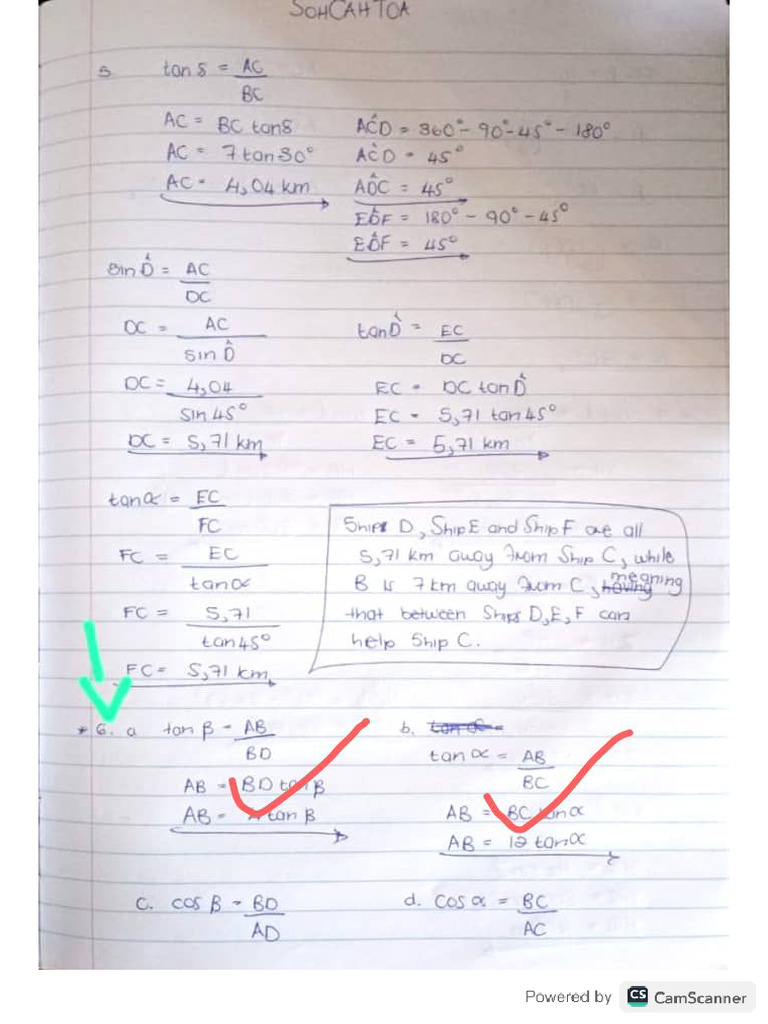 SOHCAHTOA
5 tan δ = AC
BC
AC = BC tan δ
AC = 7 tan 30°
AC = 4,04 km
AĈD = 360° - 90° - 45° - 180°
AĈD = 45°
AD̂C = 45°
ED̂F = 180° - 90° - 45°
ED̂F = 45°
sin D̂ = AC
DC
DC = AC
sin D̂
DC = 4,04
sin 45°
DC = 5,71 km
tan D̂ = EC
DC
EC = DC tan D̂
EC = 5,71 tan 45°
EC = 5,71 km
tan α = EC
FC
FC = EC
tan α
FC = 5,71
tan 45°
FC = 5,71 km
Ships D, Ship E and Ship F are all
5,71 km away from Ship C, while
B is 7 km away from C, having meaning
that between Ships D, E, F can
help Ship C.
* 6. a tan β = AB
BD
AB = BD tan β
AB = tan β
b. tan α =
tan α = AB
BC
AB = BC tan α
AB = 12 tan α
c. cos β = BD
AD
d. cos α = BC
AC
Powered by CS CamScanner